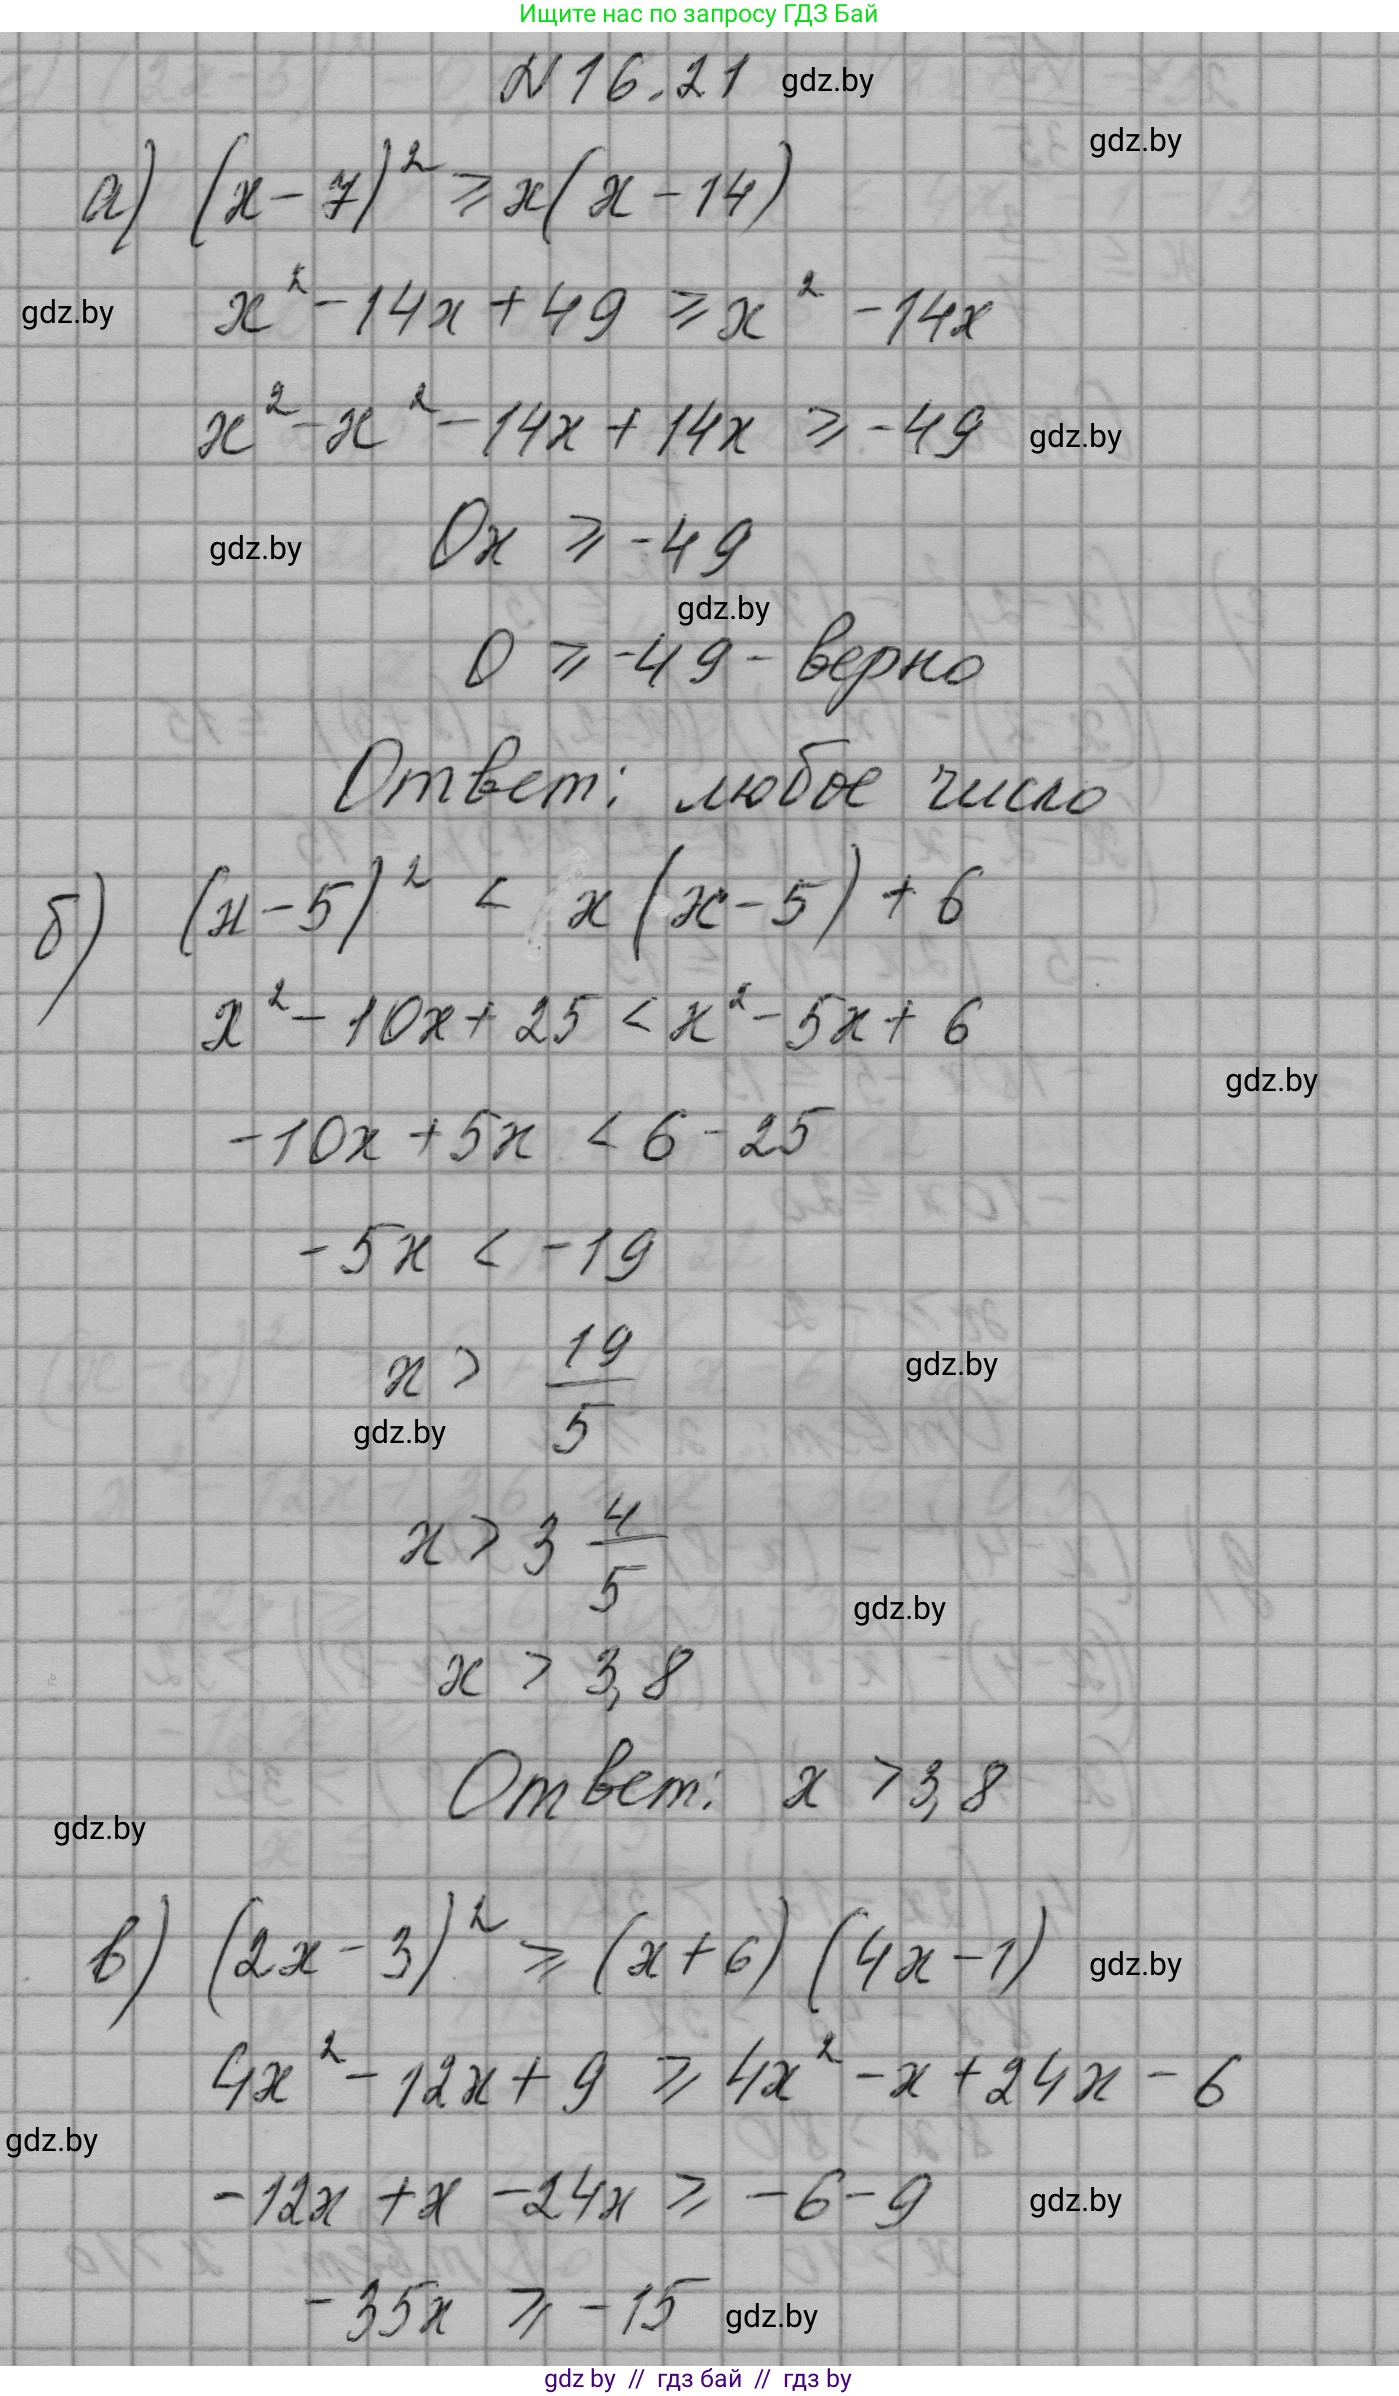 Ищите нас по запросу ГДЗ Бай
N 16.21 gdz.by
gdz.by
а) (x - 7)² ⩾ x(x - 14)
gdz.by x² - 14x + 49 ⩾ x² - 14x
x² - x² - 14x + 14x ⩾ -49 gdz.by
gdz.by 0x ⩾ -49
gdz.by
0 ⩾ -49 - верно
Ответ: любое число
б) (x - 5)² < x(x - 5) + 6
x² - 10x + 25 < x² - 5x + 6
gdz.by
-10x + 5x < 6 - 25
-5x < -19
x > 19/5 gdz.by
gdz.by
x > 3 4/5
gdz.by
x > 3,8
Ответ: x > 3,8
gdz.by
в) (2x - 3)² ⩾ (x + 6)(4x - 1) gdz.by
4x² - 12x + 9 ⩾ 4x² - x + 24x - 6
gdz.by
-12x + x - 24x ⩾ -6 - 9 gdz.by
-35x ⩾ -15 gdz.by
gdz by // гдз бай // гдз by